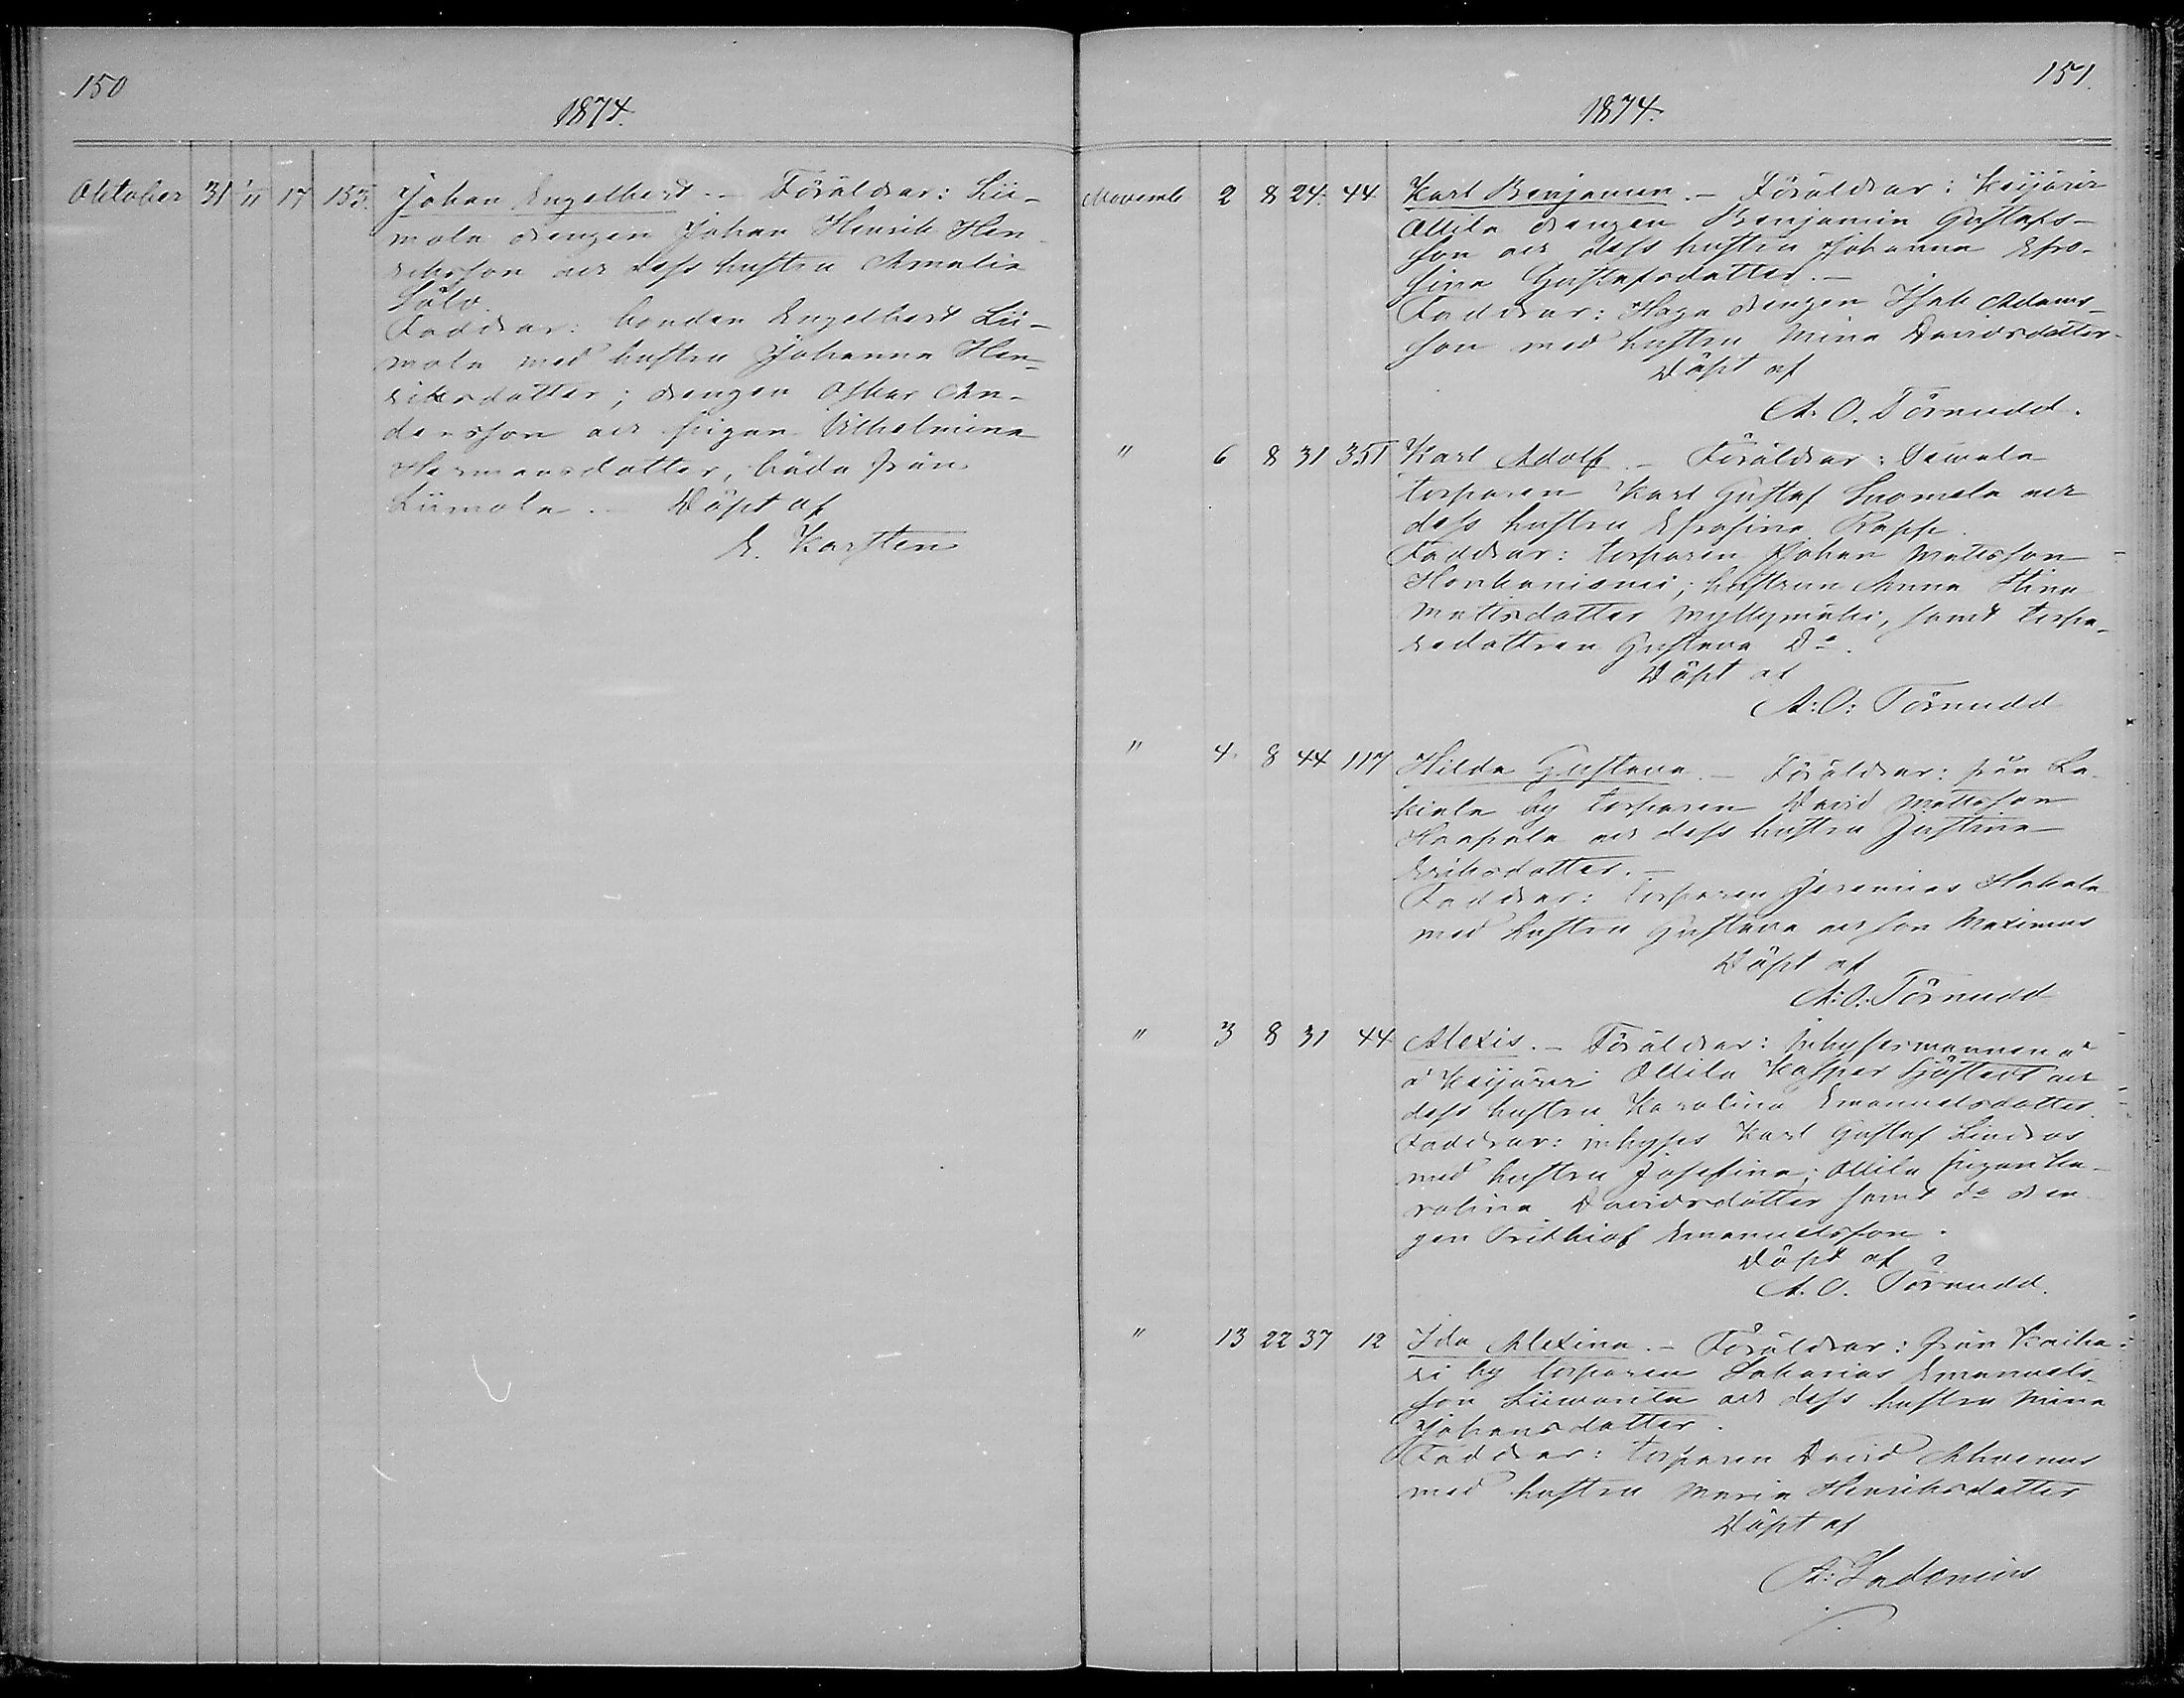 150
1874.
Oktober 31 1/11 17 153. Johan Engelbert. - Föräldrar: Lii-
mola drengen Johan Henrik Hen-
riksson och dess hustru Amalia
Sölv.
Faddrar: bonden Engelbert Lii-
mola med hustru Johanna Hen-
riksdotter; drengen Oskar An-
dersson och pigan Vilhelmina
Hermansdotter, båda från
Liimola. - Döpt af
E. Karsten
151.
1874.
Novemb 2 8 24. 44 Karl Benjamin. - Föräldrar: Keijärvi
Ollila drengen Benjamin Gustafs-
son och dess hustru Johanna Efro-
sina Gustafsdotter. -
Faddrar: Haga drengen Isak Adams-
son med hustru Mina Davidsdotter.
Döpt af
A. O. Törnudd.
" 6 8 31 351 Karl Adolf. - Föräldrar:
torparen Karl Gustaf Suomela och
dess hustru Efrosina Rapp.
Faddrar: torparen Johan Mattsson
Honkaniemi; hustrun Anna Stina
Mattsdotter Myllymäki, samt torpa-
redottren Gustava Do.
Döpt af
A: O: Törnudd
" 4. 8 44 117 Hilda Gustava. - Föräldrar: från La-
kiala by torparen David Mattsson
Haapala och dess hustru Justina
Eriksdotter. -
Faddrar: torparen Jeremias Hakala
med hustru Gustava och son Maximus
Döpt af
A: O. Törnudd
" 3 8 31 44 Alexis. - Föräldrar: Inhysesmannen
å Keijärvi Ollila Kasper Sjöstedt och
dess hustru Karolina Emanuelsdotter.
Faddrar: inhyses Karl Gustaf Lindros
med hustru Josefina; Ollila pigan Ka-
rolina Davidsdotter samt do dren-
gen Frithiof Emanuelsson.
Döpt af
A. O. Törnudd.
" 13 22 37 12 Ida Alexina. - Föräldrar: från Kaiha-
ri by torparen Sakarias Emanuels-
son Liuvanta och dess hustru Mina
Johansdotter.
Faddrar: torparen David Ahvenus
med hustru Maria Henriksdotter
Döpt af
A: Indenius